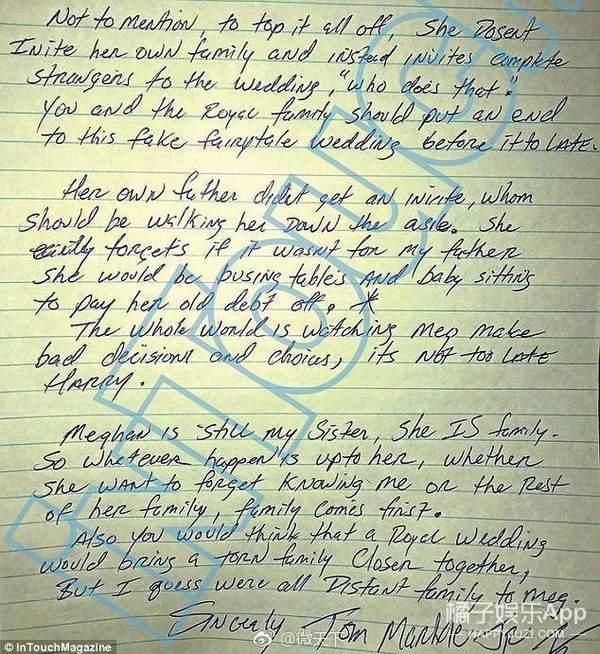 Not to mention, to top it all off, She Dosent
Inite her own family and instead invites complete
strangers to the wedding, "who does that."
You and the Royal family should put an end
to this fake fairytale wedding before it to LATE.
Her own father didnt get an inivite, whom
should be walking her DOWN the asle. She
forgets if it wasnt for my father
she would be busing tables AND baby sitting
to pay her old debt off. *
The whole world is watching Meg make
bad decisions and choices, its Not too LATE
HARRY.
Meghan is still my Sister, She IS family.
So whatever happen is upto her, whether
She WANT to forget Knowing me or the Rest
of her family, family comes first.
Also you would think that a Royal wedding
would bring a torn family Closer together,
But I guess were all Distant family to meg.
Sincerly Tom Markle Jr
INTOUCH
@微天下
橘子娱乐App
HAPPYJUZI.COM
© InTouchMagazine